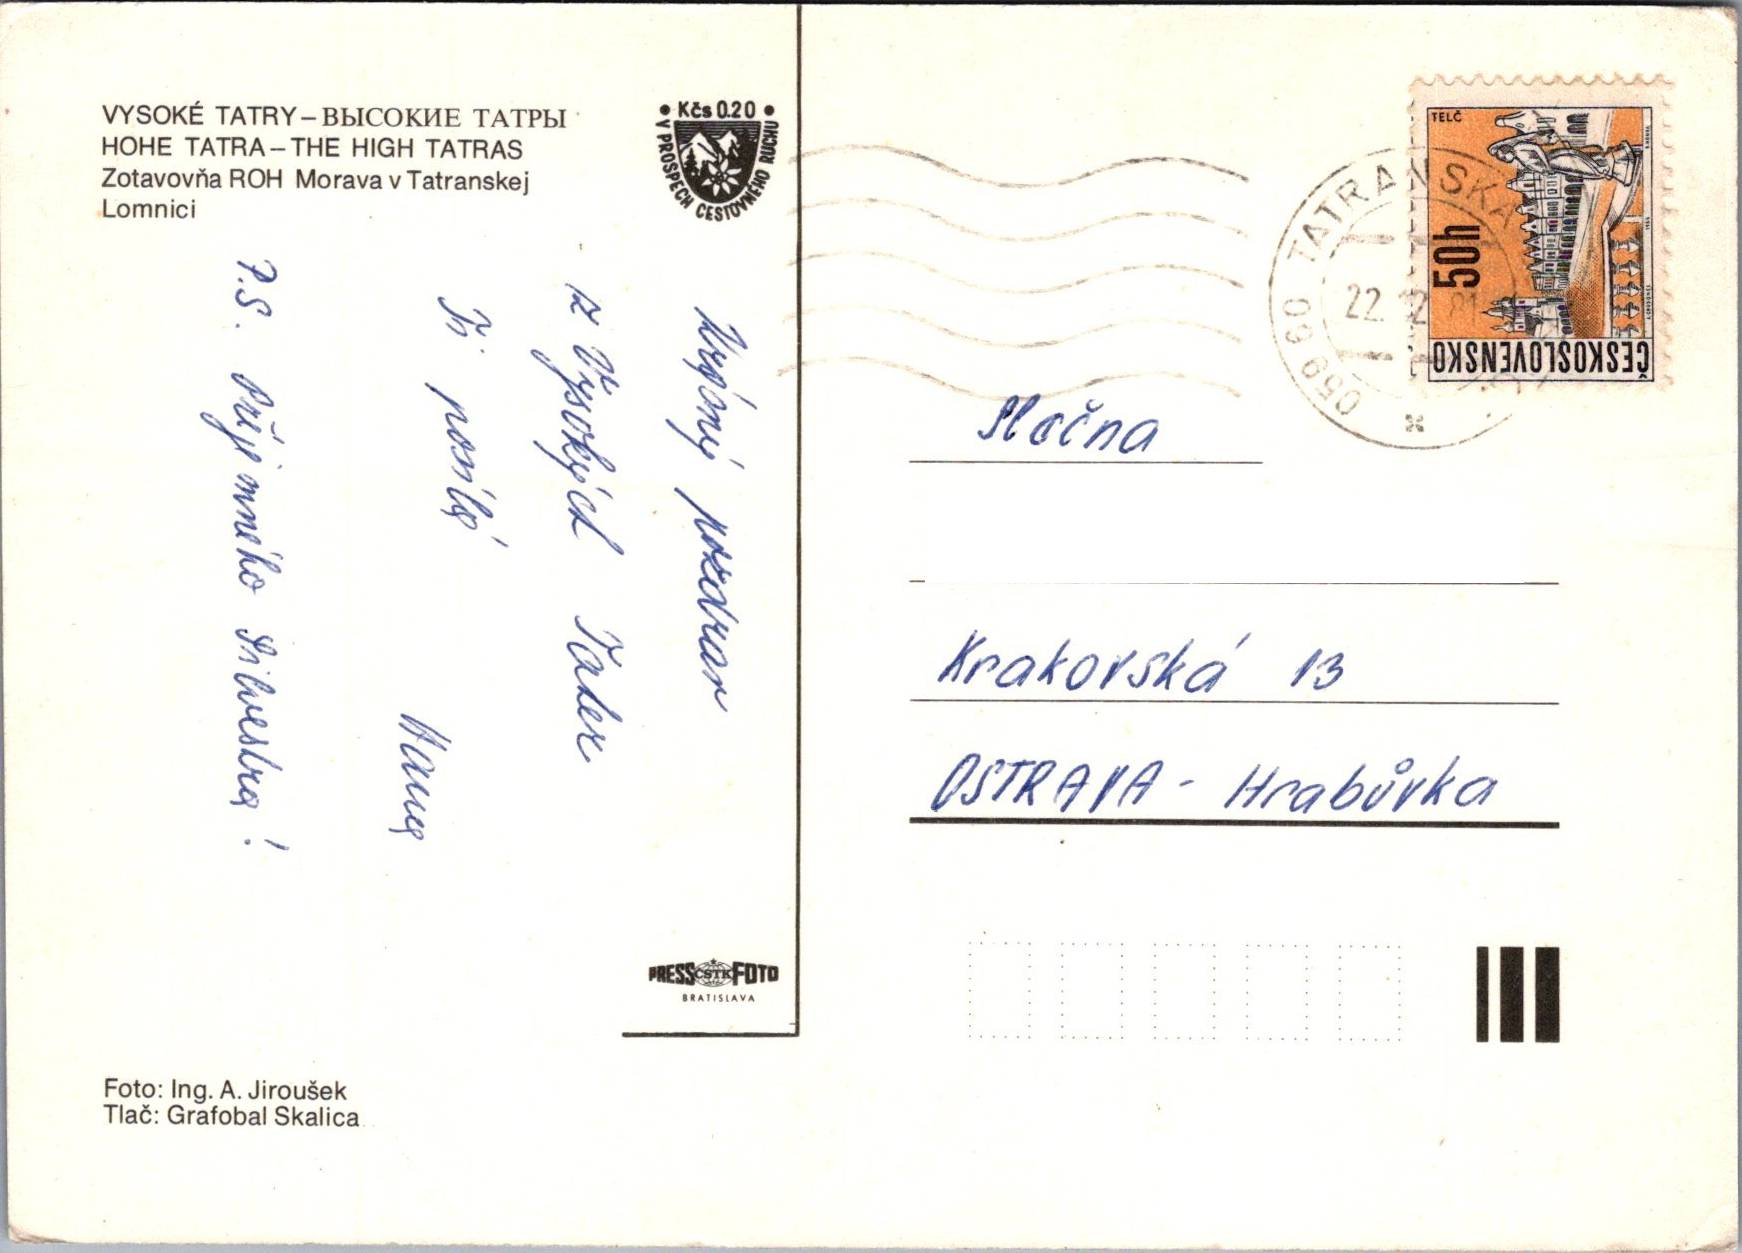 VYSOKÉ TATRY – ВЫСОКИЕ ТАТРЫ
HOHE TATRA – THE HIGH TATRAS
Zotavovňa ROH Morava v Tatranskej
Lomnici
• Kčs 0.20 •
V PROSPECH CESTOVNÉHO RUCHU
pozdrav
z Vysokých Tater
Ti posílá
Hana
P.S. Příjemného Silvestra!
PRESS ČSTK FOTO
BRATISLAVA
Foto: Ing. A. Jiroušek
Tlač: Grafobal Skalica
059 60 TATRANSKÁ
22. 12. 81
TELČ
50h
ČESKOSLOVENSKO
Slečna
Krakovská 13
OSTRAVA - Hrabůvka